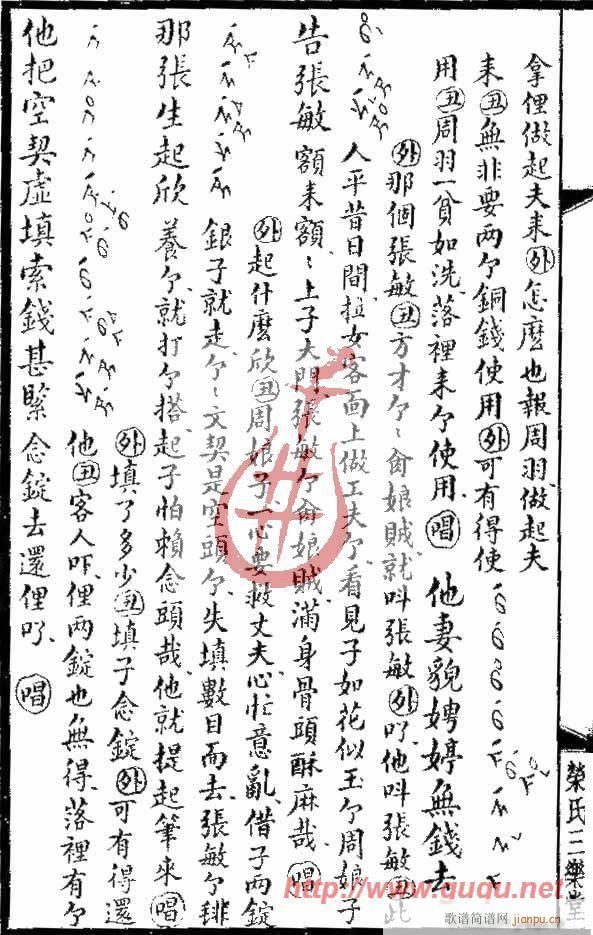 拿俚做起夫来㊀外怎麽也報周羽做起夫
来丑無非要兩个銅錢使用外可有得使
用丑周羽一貧如洗落裡来个使用唱他妻貌娉婷無錢去
外那個張敏丑方才个个
娘賊就叫張敏外
他叫張敏丑此
人平昔日間拉女客面上做工夫个看見子如花似玉个周娘子
告張敏額来額上子大門張敏个
娘賊滿身骨頭酥麻哉唱
外起什麽欣丑周娘子一心要救丈夫心忙意亂借子兩錠
銀子就走个文契是空頭个失填數目而去張敏个
那張生起欣養个就打个搭起子怕賴念頭哉他就提起筆来唱
外填了多少丑填子念錠外可有得還
他丑客人吓俚兩錠也無得落裡有个
他把空契虚填索錢甚緊念錠去還俚
唱
榮氏三樂堂
http://www.guqu.net
歌谱简谱网
jianpu.cn